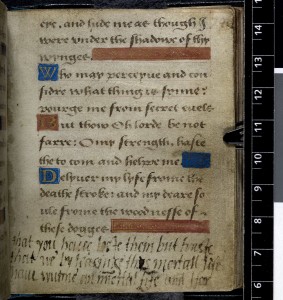 eye, and hide me as though I
were under the shadowe of thy
wynges.
Who may perceyue and con
sidre what thing is synne?
pourge me from secret euels
But thow Oh lorde be not
farre: O my strength, haste
the to com and helpe me
Delyuer my lyfe frome the
deathe stroke: and my deare so
ule frome the woodnesse of
these dogges
that you haue loste them but
that we by leasing this mortall life
haue immortal life and
14
13
12
11
10
9
8
7
6